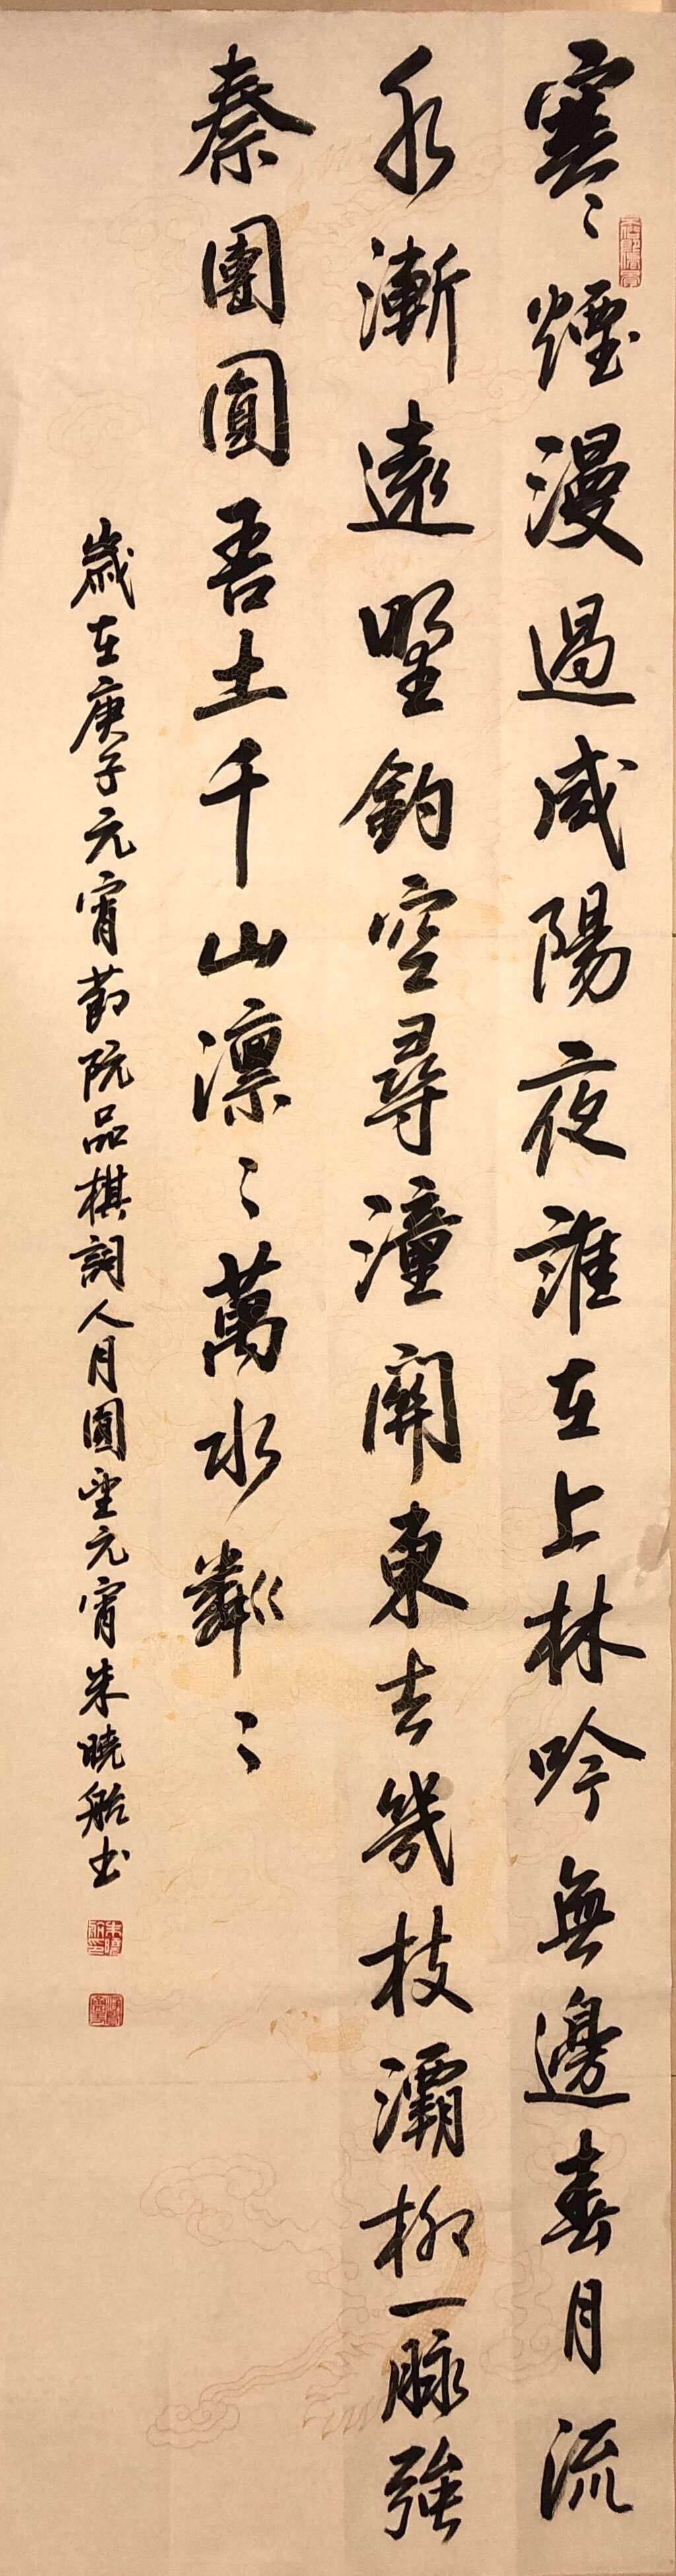 寒〻煙漫過咸陽夜誰在上林吟無邊春月流
水漸遠墅釣空尋潼關東去幾枝灞柳一脉強
秦團圓吾土千山凛〻萬水粼〻
歲在庚子元宵節阮品棋詞人月圓望元宵朱曉船书